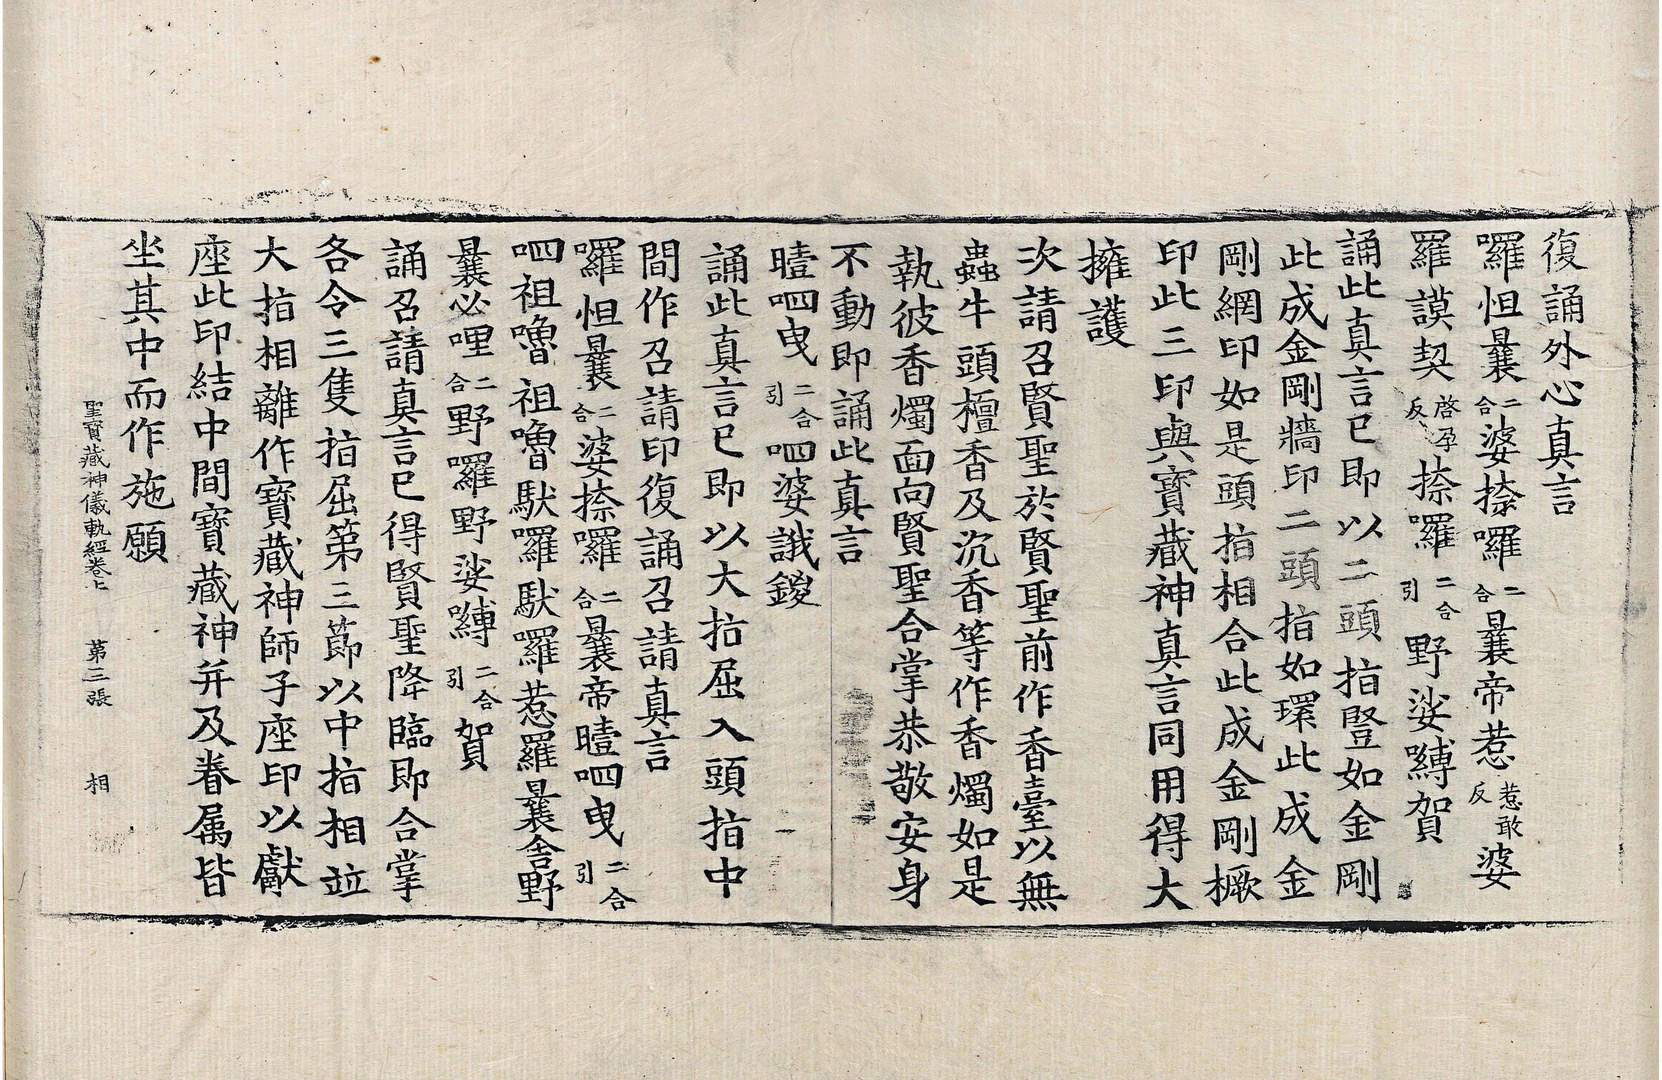 復誦外心真言
囉怛曩二合婆捺囉二合曩帝惹惹敢反婆
羅謨契啓孕反捺囉二合引野娑嚩賀
誦此真言已即以二頭指豎如金剛
此成金剛牆印二頭指如環此成金
剛網印如是頭指相合此成金剛橛
印此三印與寶藏神真言同用得大
擁護
次請召賢聖於賢聖前作香臺以無
蟲牛頭檀香及沉香等作香燭如是
執彼香燭面向賢聖合掌恭敬安身
不動即誦此真言
曀呬曳二合引呬婆誐鑁
誦此真言已即以大指屈入頭指中
間作召請印復誦召請真言
囉怛曩二合婆捺囉二合曩帝曀呬曳二合引
呬祖嚕祖嚕馱囉馱囉惹羅曩舍野
曩必哩二合野囉野娑嚩二合引賀
誦召請真言已得賢聖降臨即合掌
各令三隻指屈第三節以中指相竝
大指相離作寶藏神師子座印以獻
座此印結中間寶藏神并及眷属皆
坐其中而作施願
聖寶藏神儀軌經卷上 第三張 相